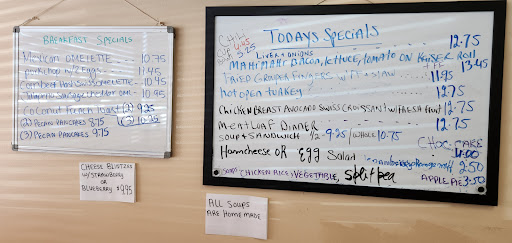 BREAKFAST SPECIALS
Mexican OMELETTE 10.75
w/2 Eggs 11.45
Corned Beef Hash OMELETTE 10.95
Sausage OM. 10.95
COCONUT French Toast (2) 9.25
(2) PECAN PANCAKES 8.75 (3) 10.25
(3) PECAN PANCAKES 9.75
CHEESE BLINTZES
W/STRAWBERRY
OR
BLUEBERRY $9.95
CHILI
CUP 4.45
3.25
TODAYS SPECIALS
LIVER & ONIONS 12.75
MAHI MAHI, BACON, LETTUCE, TOMATO ON KAISER ROLL 13.45
FRIED GROUPER FINGERS WITH SLAW 11.95
Hot open Turkey 12.75
CHICKEN BREAST AVOCADO SWISS CROISSANT W/FRESH fruit 12.75
MEATLOAF DINNER 12.75
SOUP & SANDWICH 1/2 - 9.25 / WHOLE 10.75
CHOC. CAKE
Ham cheese OR Egg Salad 4.00
2.50
SOUPS CHICKEN RICE, VEGETABLE, Split pea APPLE PIE 3.50
ALL SOUPS
ARE HOMEMADE